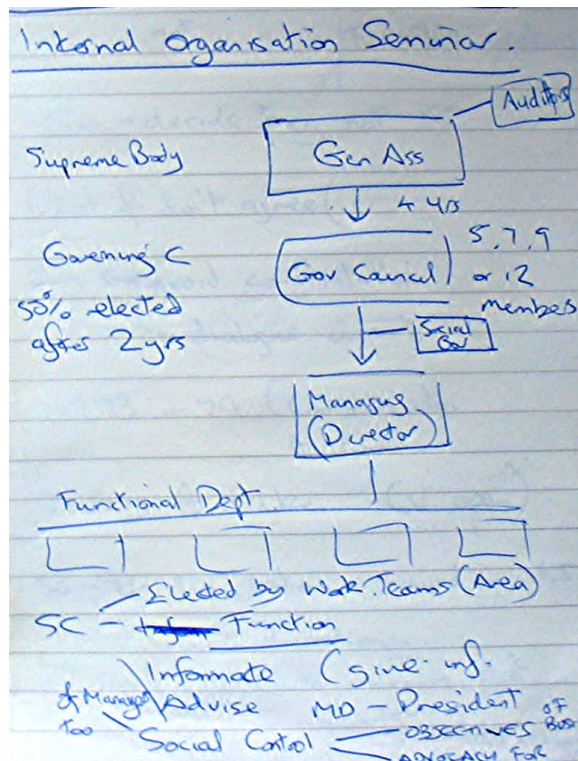 Internal Organisation Seminar.
Auditors
Supreme Body
Gen Ass
4 yrs
Governing C
Gov Council
5, 7, 9
or 12
members
50% elected
after 2 yrs
Social
Managing
(Director)
Functional Dept.
Elected by Work. Teams (Area)
SC - Function
Informate (give inf.
of Manager Advise MD - President
too Social Control OBJECTIVES OF BUS
ADVOCACY FOR